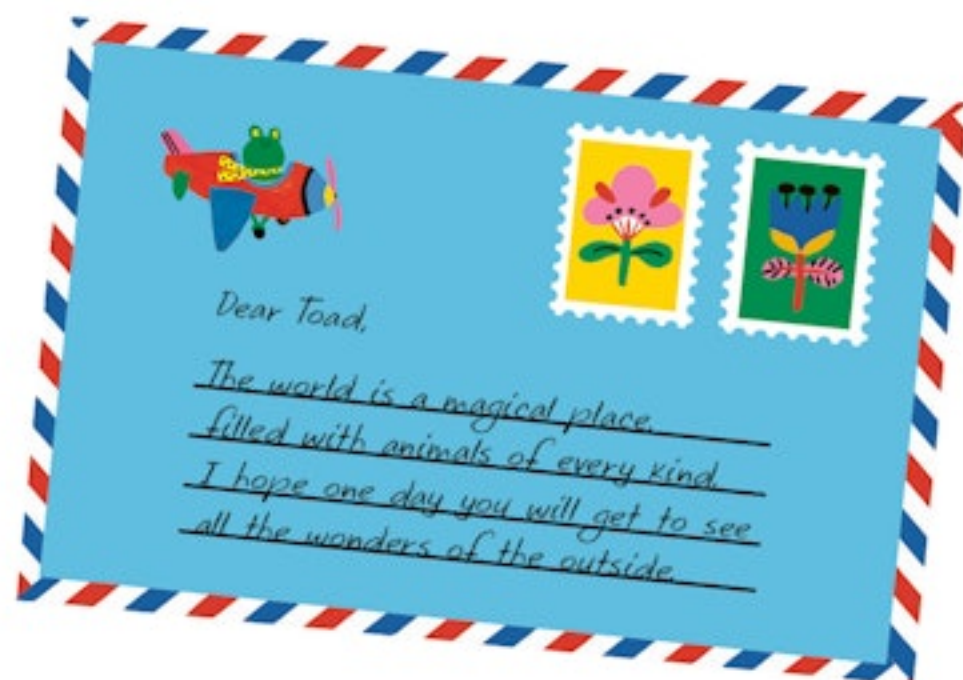 Dear Toad,
The world is a magical place,
filled with animals of every kind.
I hope one day you will get to see
all the wonders of the outside.